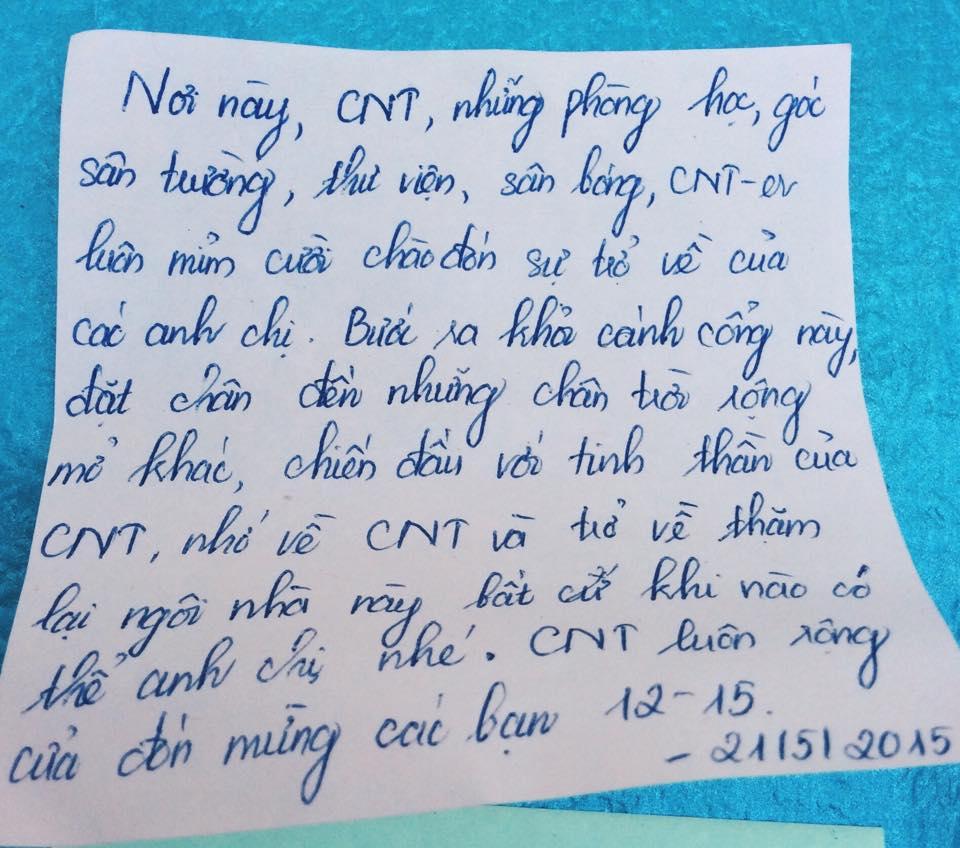 Nơi này, CNT, những phòng học, góc
sân trường, thư viện, sân bóng, CNT-er
luôn mỉm cười chào đón sự trở về của
các anh chị. Bước ra khỏi cánh cổng này,
đặt chân đến những chân trời rộng
mở khác, chiến đấu với tinh thần của
CNT, nhớ về CNT và trở về thăm
lại ngôi nhà này bất cứ khi nào có
thể anh chị nhé. CNT luôn rộng
cửa đón mừng các bạn 12-15.
- 21/5/2015